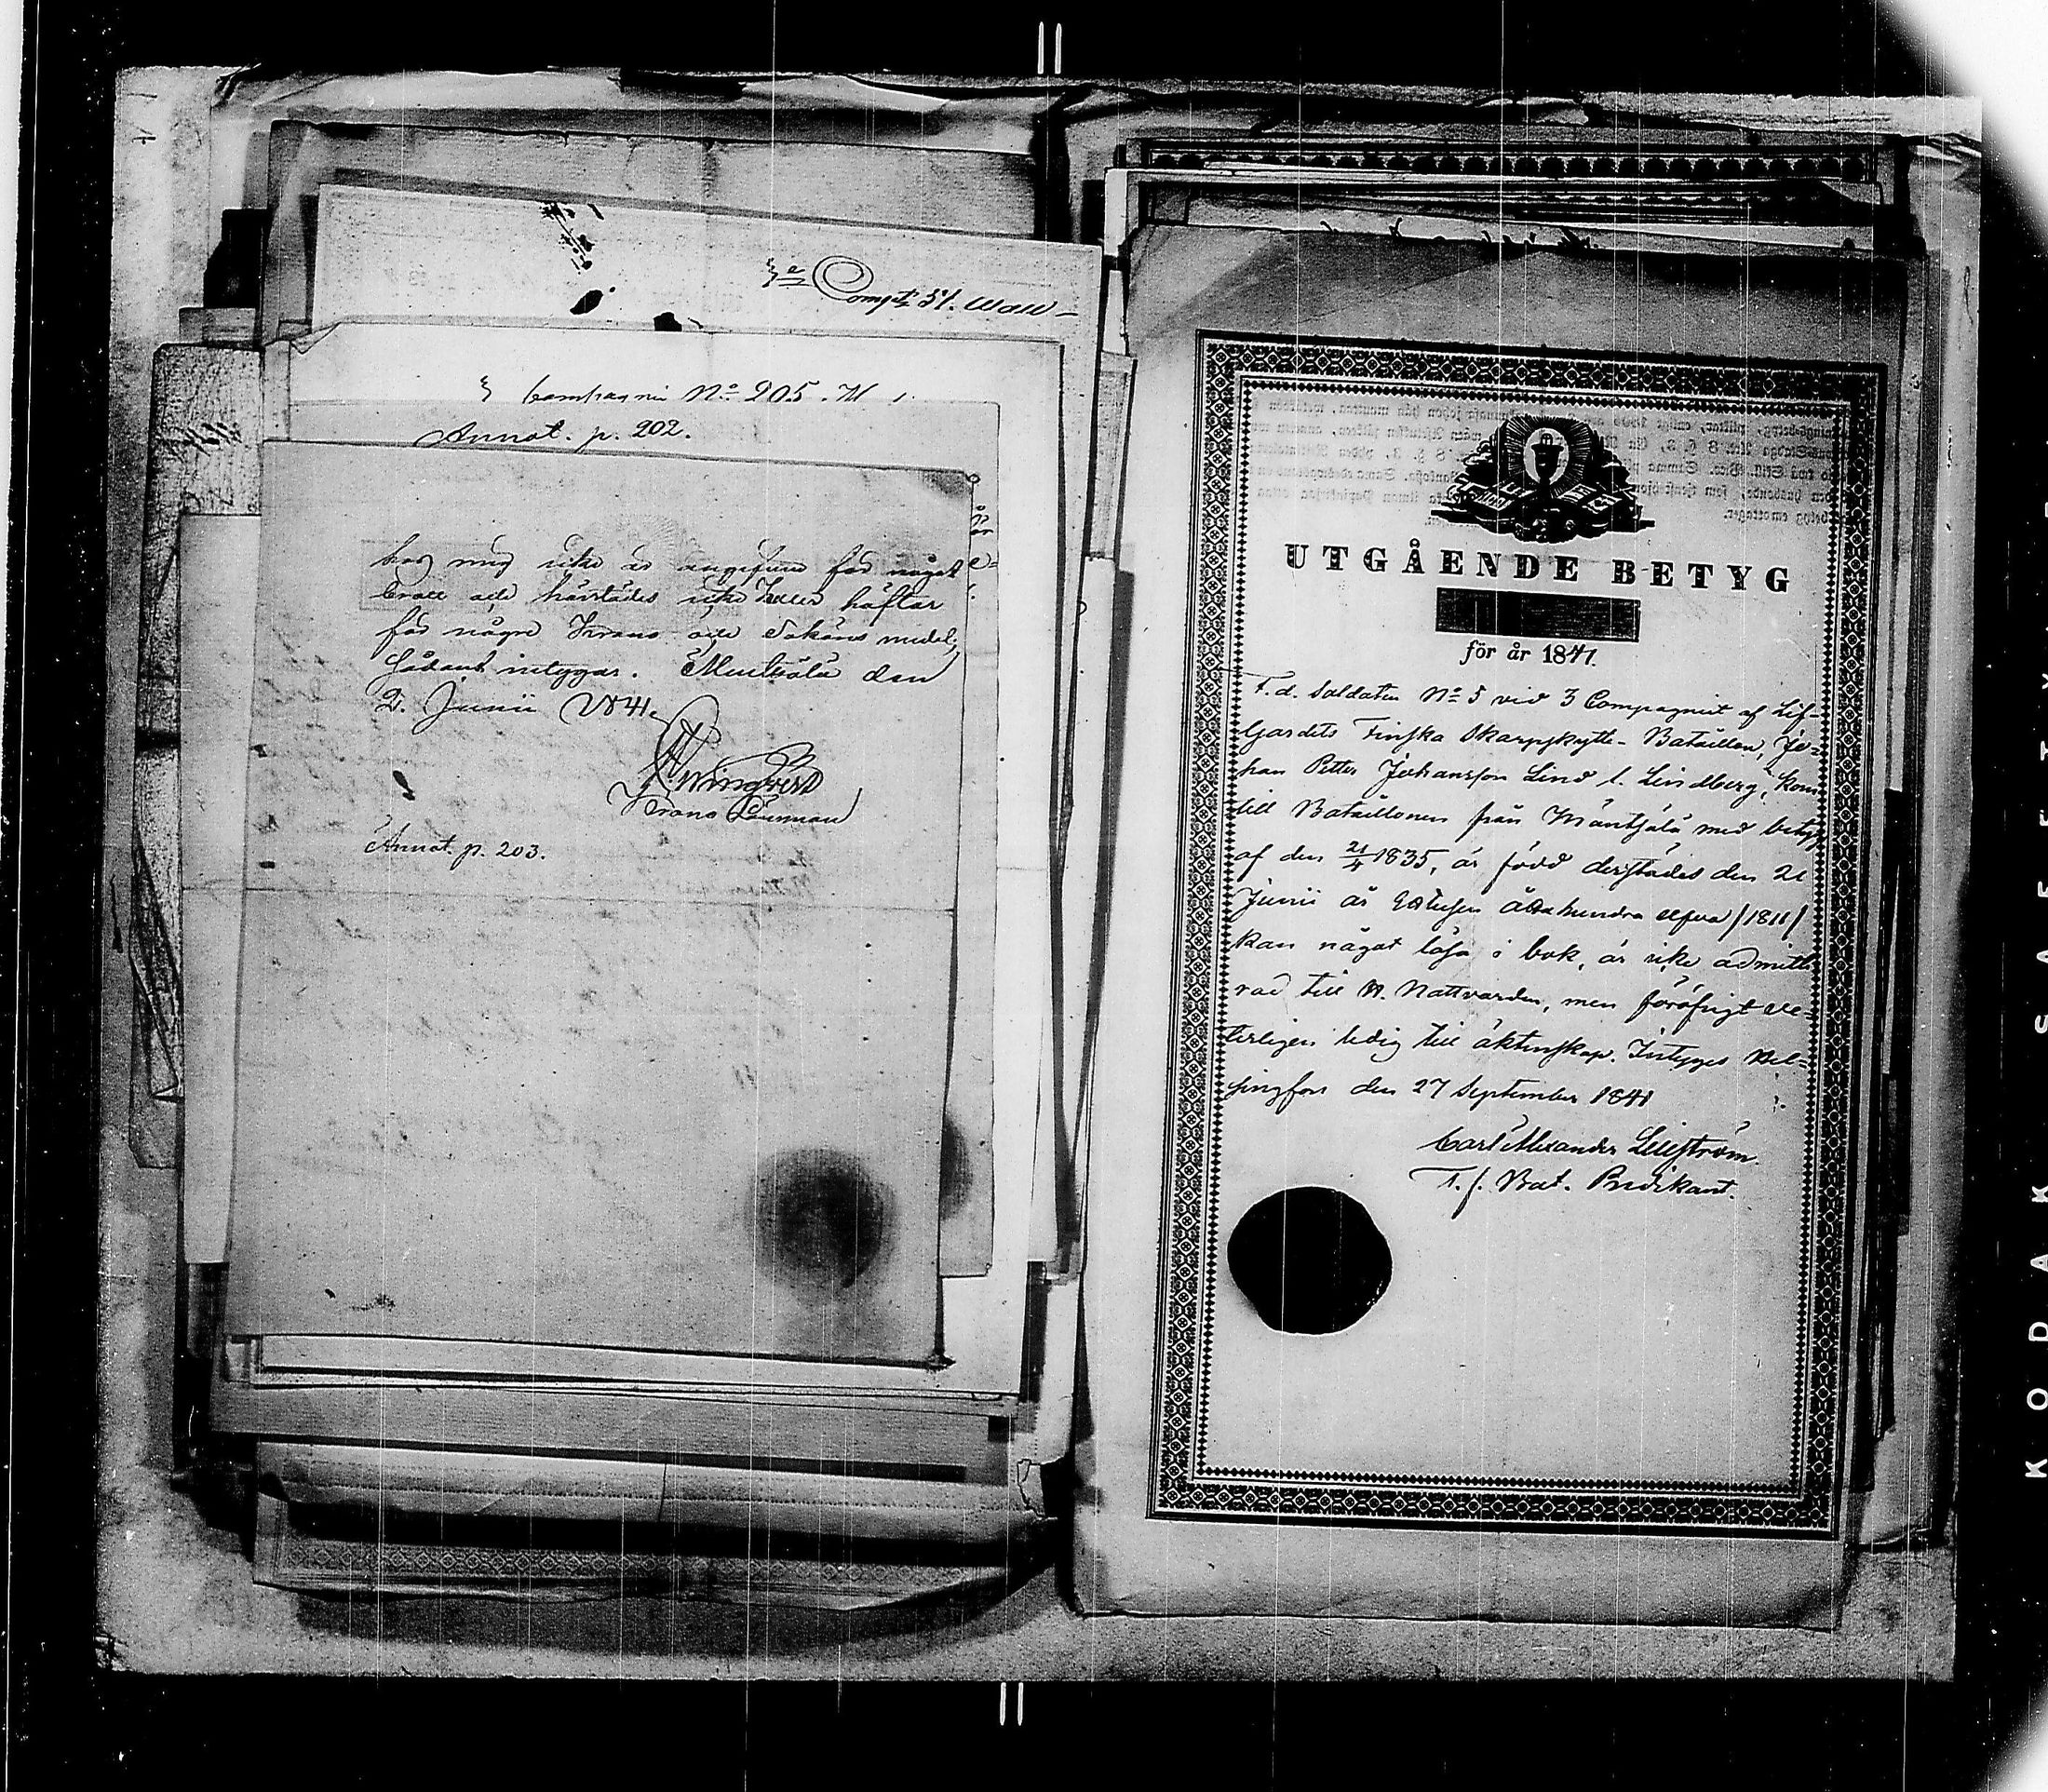 3e Comp:t 51. Wall
3 Compagnie No 205.
Annot. p. 202.
hos mig icke är angifven för något
brott och härstädes icke heller häftar
för några Krono och Sakörs medel;
Sådant intygas. Mentsälä den
2. Junii 1841.
Krono Länsman
Annot. p. 203.
UTGÅENDE BETYG
för år 1841.
F. d. Soldaten No 5 vid 3 Compagniet af Lif-
Gardets Finska Skarpskytte-Bataillon, Jo-
han Petter Johansson Lind l. Lindberg, kom
till Bataillonen från Mäntsälä med betyg
af den 21/4 1835, är född derstädes den 21
Junii år Ettusen åttahundra elfva /1811/
kan något läsa i bok, är icke admitte-
rad till H. Nattvarden, men föröfrigt ve-
terligen ledig till äktenskap. Intygas Hel-
singfors den 27 September 1841
Carl Alexander Lilljström.
T. f. Bat. Predikant.
KODAK SAFETY